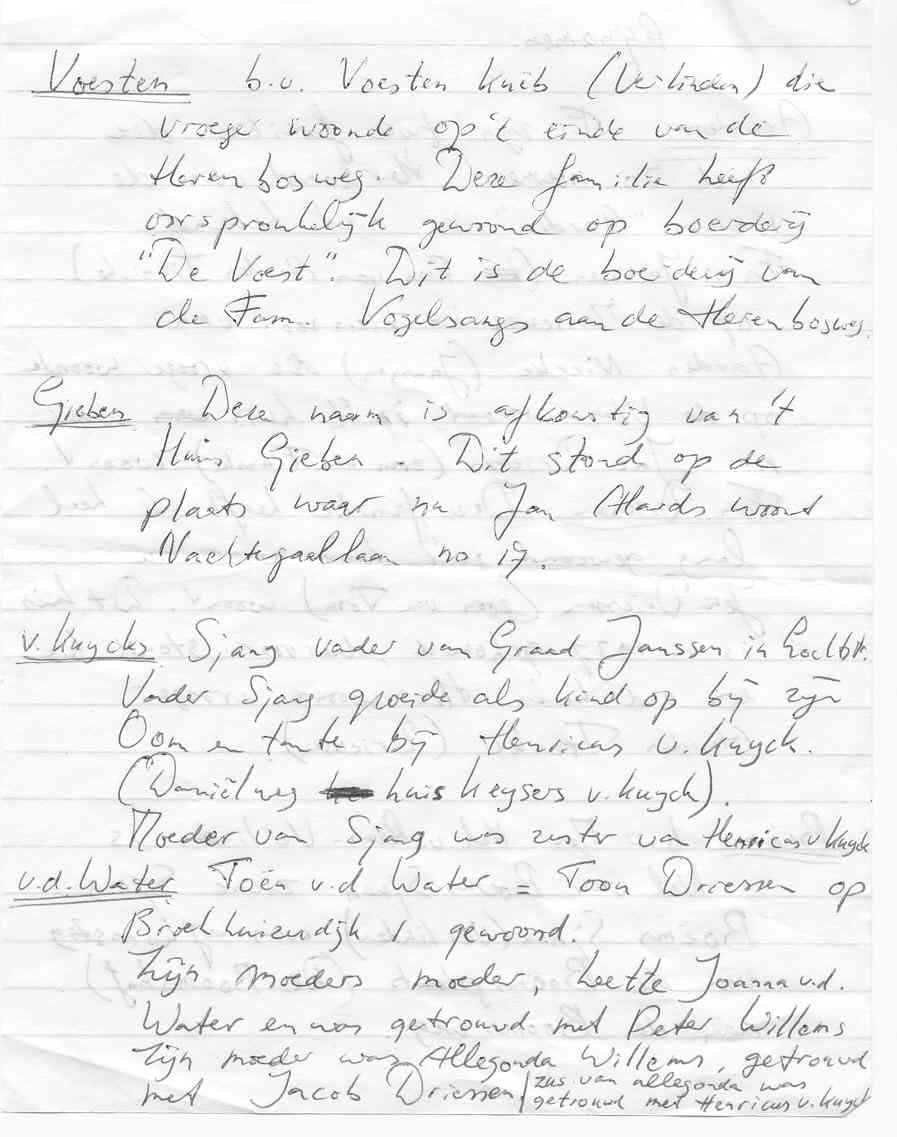 Voesten b.v. Voesten Kuëb (Verlinden) die
vroeger woonde op 't einde van de
Herenbosweg. Deze familie heeft
oorspronkelijk gewoond op boerderij
"De Voest". Dit is de boerderij van
de Fam. Vogelsangs aan de Herenbosweg.
Gieben Deze naam is afkomstig van 't
Huis Gieben. Dit stond op de
plaats waar nu Jan Alards woont
Nachtegaallaan no 17.
v. Kuycks Sjang vader van Graad Janssen in
Vader Sjang groeide als kind op bij zijn
Oom en tante bij Henricus v. Kuyck.
(Daniëlweg huis Keysers v. Kuyck).
Moeder van Sjang was zuster van Henricus v Kuyck
v.d. Water Toën v.d Water = Toon Driessen op
Broekhuizerdijk 1 gewoond.
Zijn moeders moeder, heette Joanna v.d.
Water en was getrouwd met Peter Willems
Zijn moeder was Allegonda Willems, getrouwd
met Jacob Driessen / zus van allegonda was
getrouwd met Henricus v. Kuyck